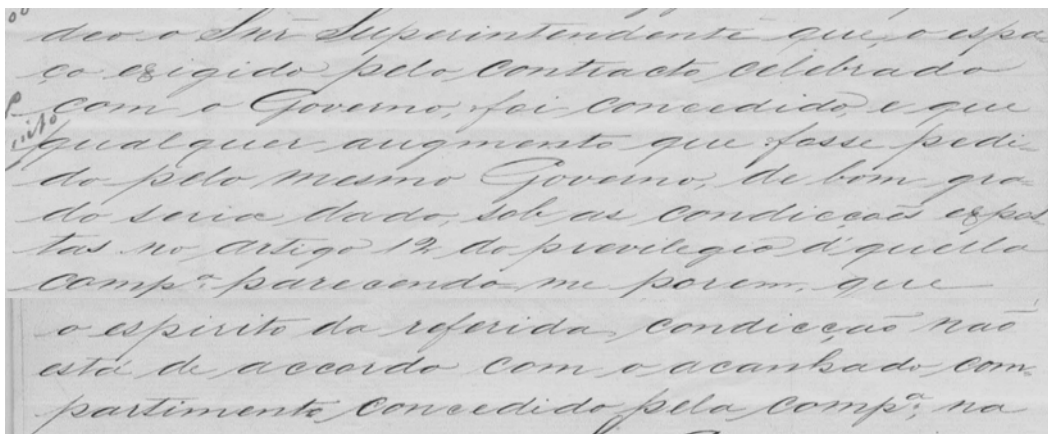 deo o Snr Superintendente que, o espa-
ço exigido pelo contracto celebrado
com o Governo, foi concedido, e que
qualquer augmento que fosse pedi-
do pelo mesmo Governo, de bom gra-
do seria dado, sob as condicções expos-
tas no artigo 12 do previlegio d'quella
compª parecendo me porem, que
o espirito da referida condicção não
está de accordo com o acanhado com-
partimento concedido pela compª, na